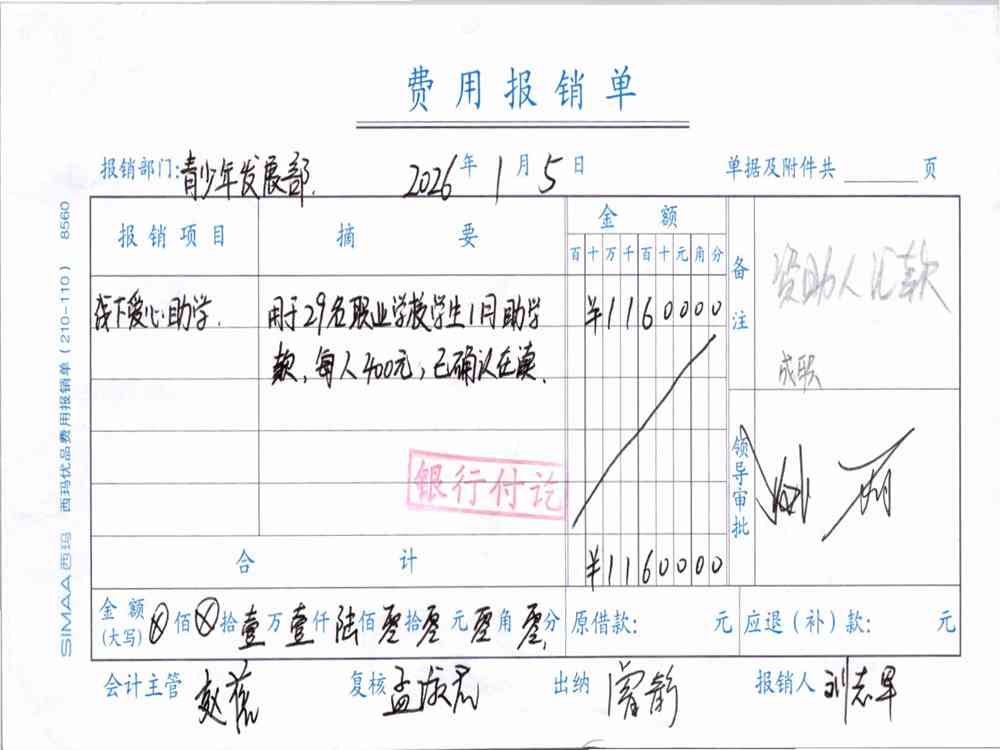 费用报销单
报销部门:青少年发展部. 2026年1月5日 单据及附件共 页
报销项目 摘要 金额 备注
百十万千百十元角分
线下爱心助学. 用于29名职业学校学生1月助学 ¥1160000
款,每人400元,已确认在读.
资助人汇款
成职
银行付讫
领导审批
合计 ¥1160000
金额(大写) ⊗佰⊗拾壹万壹仟陆佰零拾零元零角零分. 原借款: 元 应退(补)款: 元
会计主管 复核 出纳 报销人 刘志早
SIMAA西玛 西玛优品费用报销单(210-110) 8560